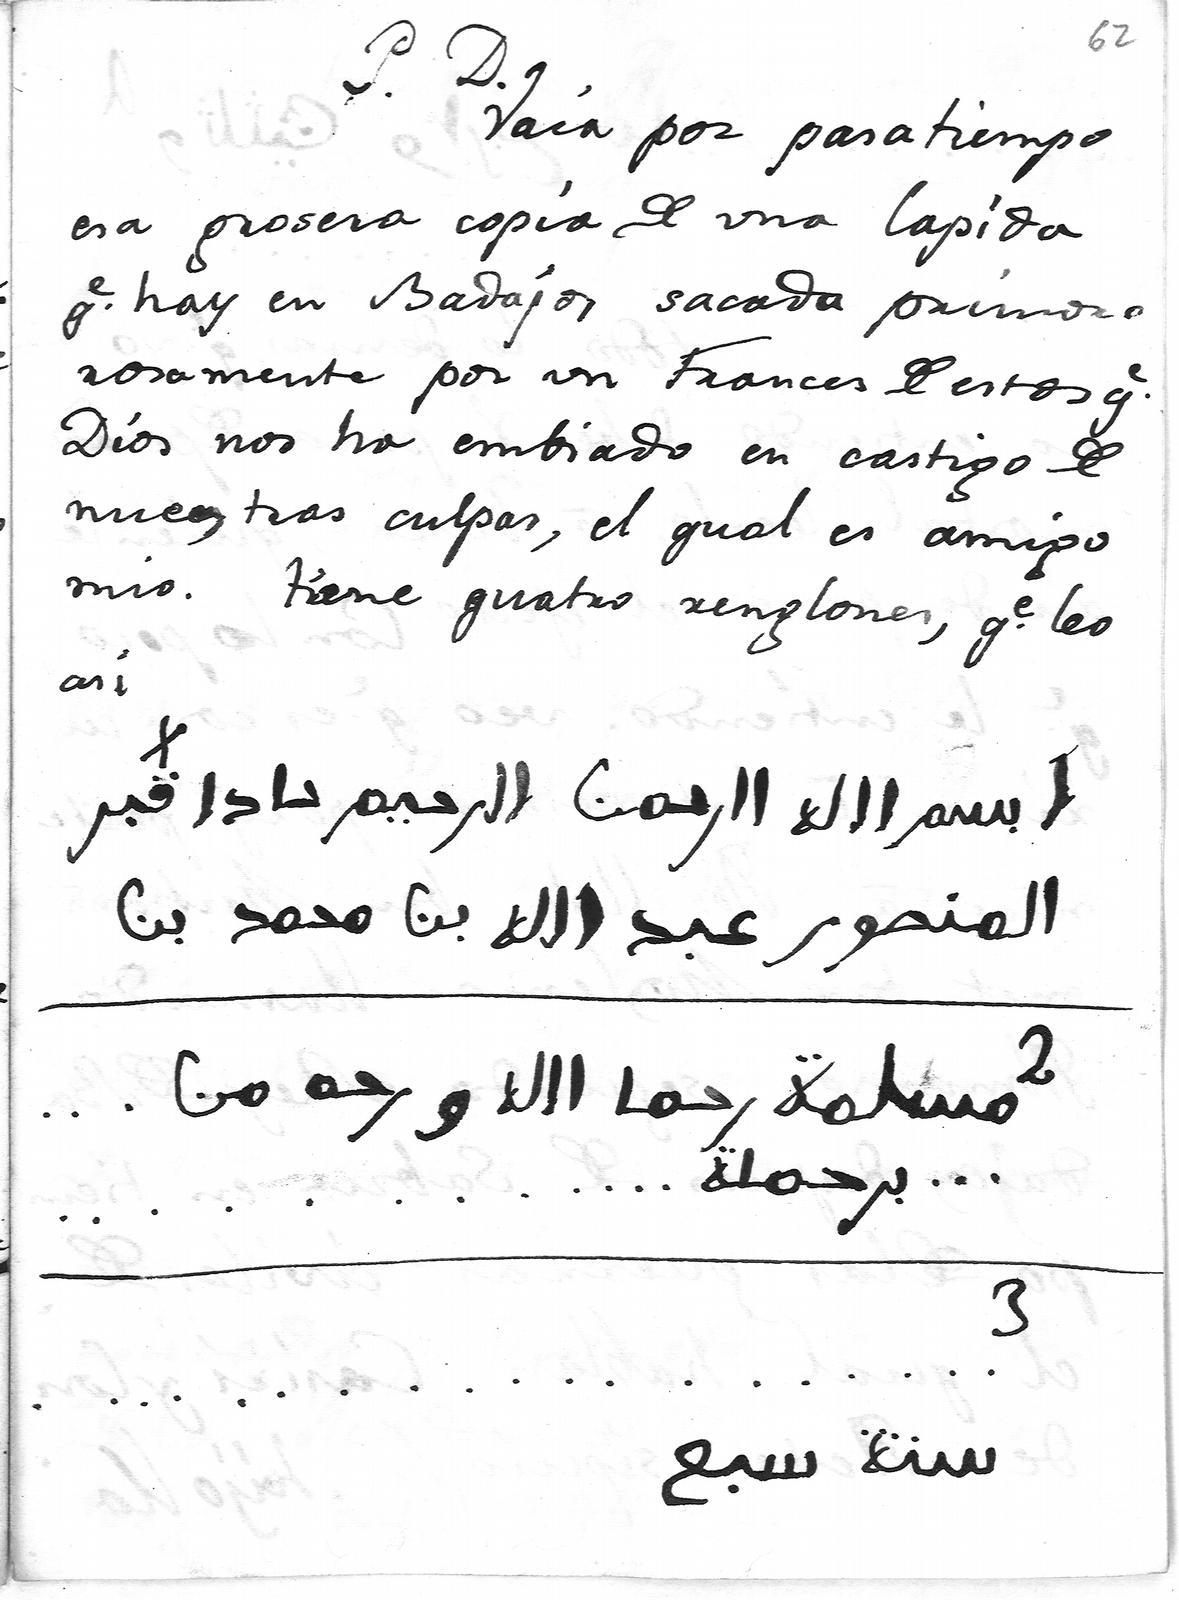 62
P. D.
Vaia por pasatiempo
esa grosera copia de una lapida
qe. hay en Badajoz sacada primo
rosamente por un Frances de estos qe.
Dios nos ha embiado en castigo de
nuestras culpas, el qual es amigo
mio. tiene quatro renglones, qe. leo
asi
x
1 بسم الله الرحمن الرحيم هاذا قبر
المنصور عبد الله بن محمد بن
2 مسلمة رحما الله و رحه من ...
... برحملة ............
3
................
سنة سبع